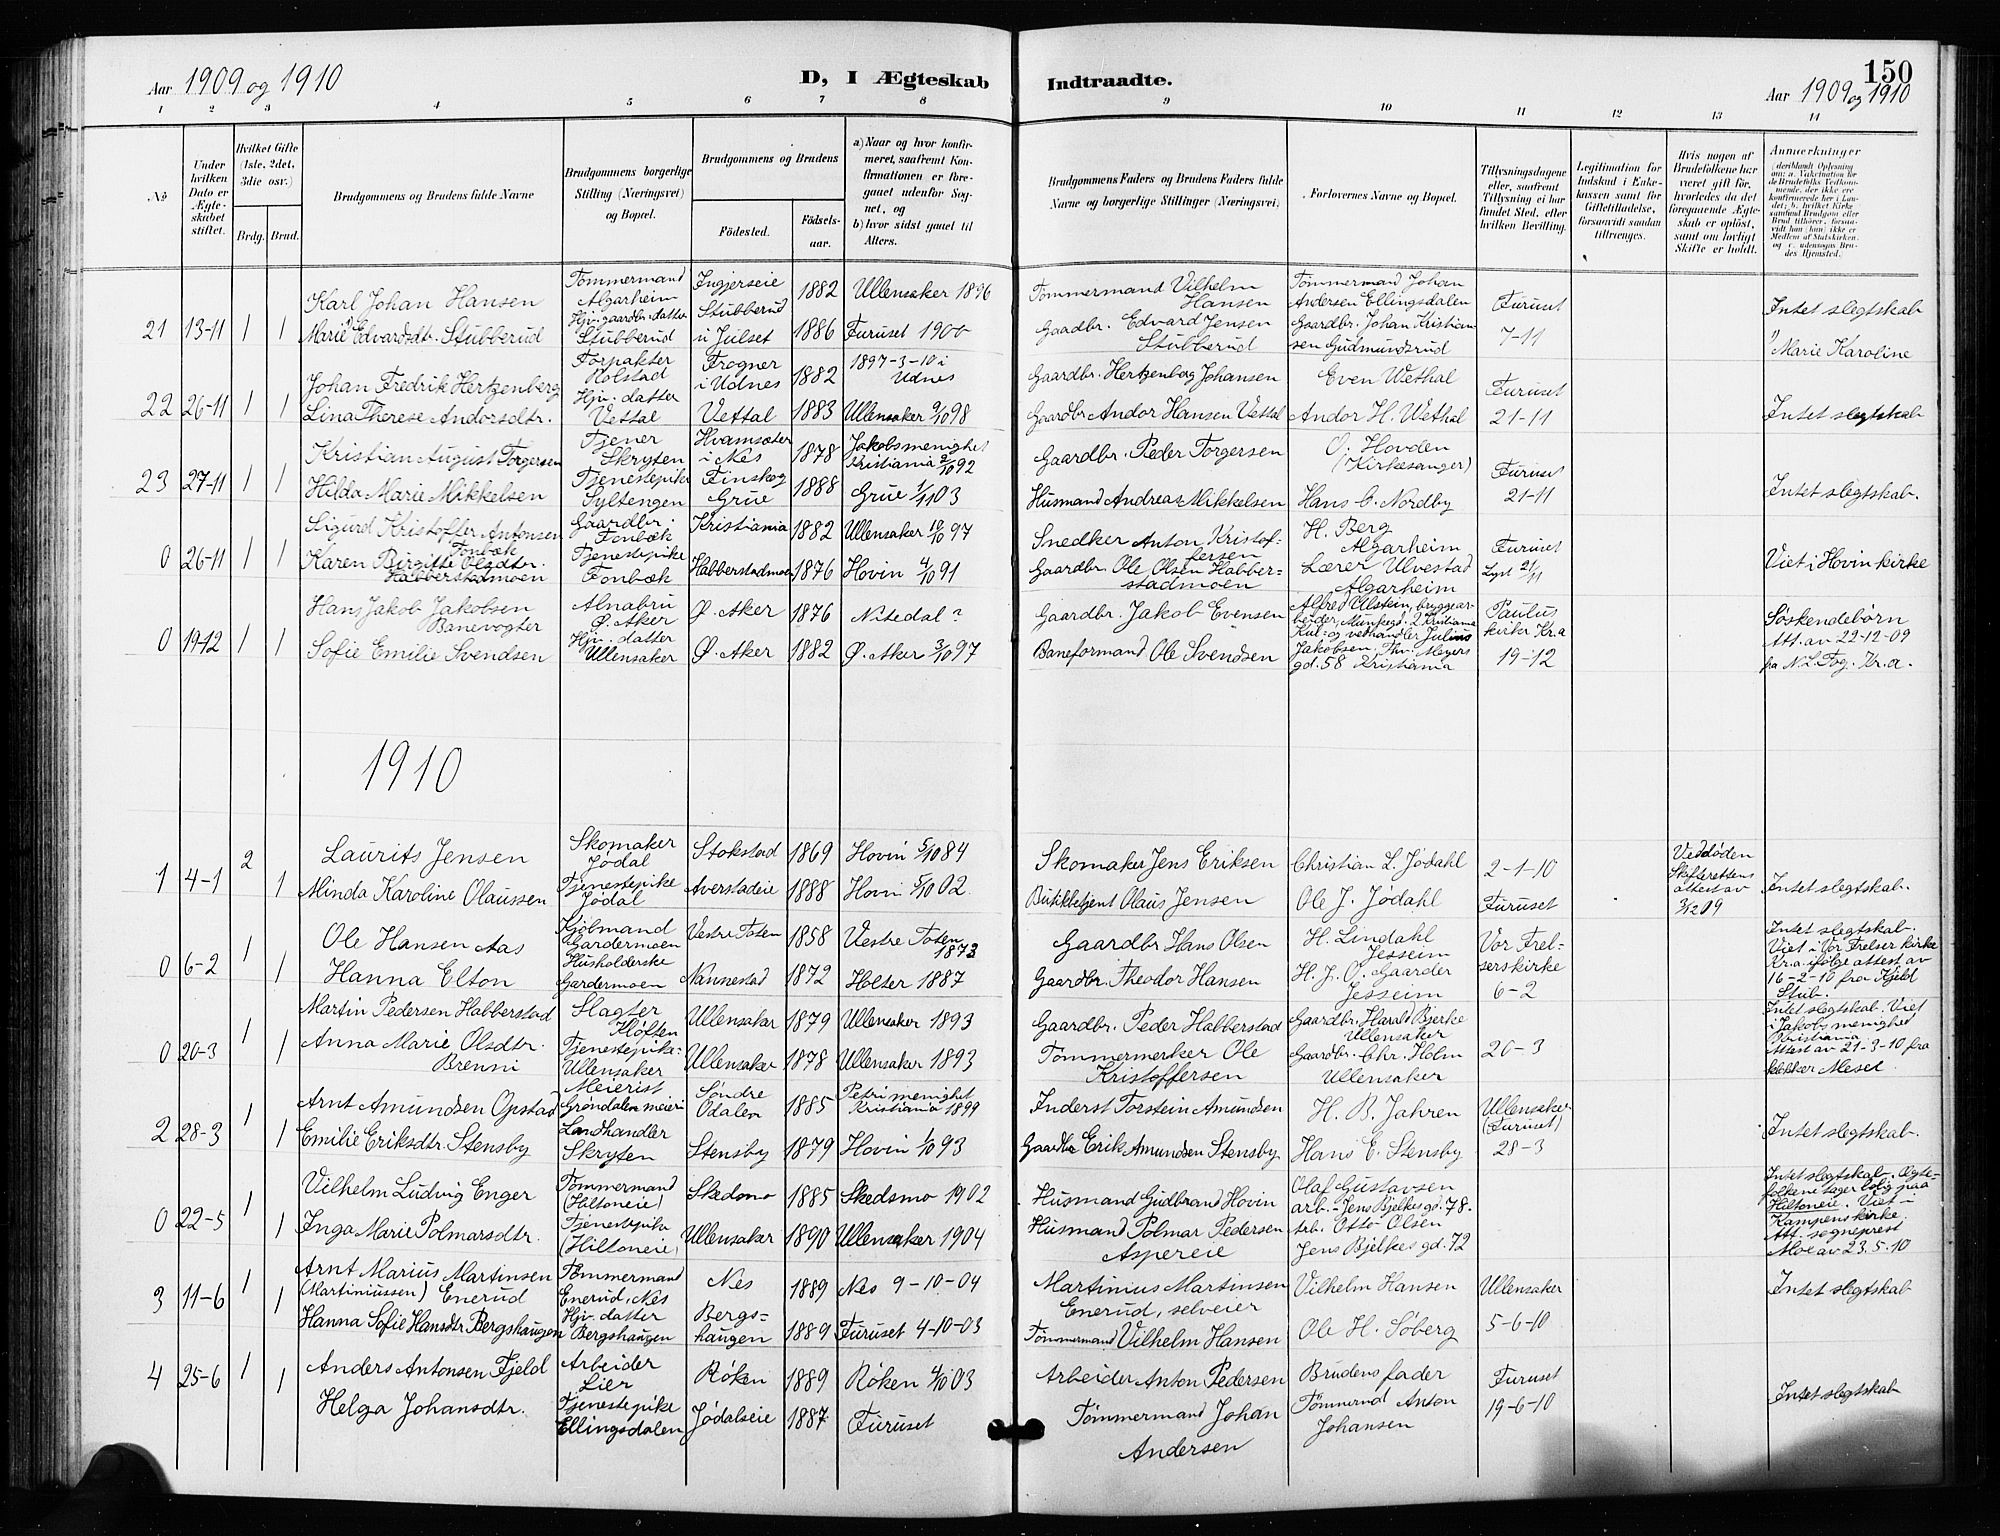 Aar 1909 og 1910
D, I Ægteskab
Indtraadte.
150
Aar 1909 og 1910
1 2 3 4 5 6 7 8 9 10 11 12 13 14
No
Under hvilken Dato er Ægteskabet stiftet.
Hvilket Gifte (1ste, 2det, 3die osv.)
Brdg. Brud.
Brudgommens og Brudens fulde Navne
Brudgommens borgerlige Stilling (Næringsvei) og Bopæl.
Brudgommens og Brudens
Fødested.
Fødselsaar.
a) Naar og hvor konfirmeret, saafremt Konfirmationen er foregaaet udenfor Sognet, og
b) hvor sidst gaaet til Alters.
Brudgommens Faders og Brudens Faders fulde Navne og borgerlige Stillinger (Næringsvei)
Forlovernes Navne og Bopæl.
Tillysningsdagene eller, saafremt Tillysning ei har fundet Sted, efter hvilken Bevilling.
Legitimation for Indskud i Enkekassen samt for Giftetilladelse, forsaavidt saadan tiltrænges.
Hvis nogen af Brudefolkene har været gift før, hvorledes da det foregaaende Ægteskab er opløst, samt om lovligt Skifte er holdt.
Anmærkninger
(deriblandt Oplysning om: a. Vakcination for de Brudefolks Vedkommende, der ikke ere konfirmerede her i Landet; b. hvilket Kirkesamfund Brudgom eller Brud tilhører, forsaavidt han (hun) ikke er Medlem af Statskirken, og c. udensogns Brudes Hjemsted.
21 13-11 1 1 Karl Johan Hansen
Tømmermand Algarheim Ingjerseie 1882 Ullensaker 1896
Tømmermand Vilhelm Hansen
Tømmermand Johan Andersen Ellingsdalen
Furuset 7-11
Intet slegtskab
Marie Edvardsdtr. Stubberud
Hjv. gaardbr. datter Stubberud Stubberud i Julset 1886 Furuset 1900
Gaardbr. Edvard Jensen Stubberud
Gaardbr. Johan Kristiansen Gudmundsrud
1) Marie Karoline
22 26-11 1 1 Johan Fredrik Hertzenberg
Forpakter Rolstad Frogner i Udnes 1882 1897-3-10 i Udnes
Gaardbr. Hertzenberg Johansen
Even Wethal
Furuset 21-11
Lina Therese Andorsdtr.
Hjv. datter Vettal Vettal 1883 Ullensaker 9/10 98
Gaardbr Andor Hansen Vettal
Andor H. Wethal
Intet slegtskab
23 27-11 1 1 Kristian August Torgersen
Tjener Skryten Hvamsæter i Nes 1878 Jakobsmenighet Kristiania 2/10 92
Gaardbr. Peder Torgersen
O. Hovden (Kirkesanger)
Furuset 21-11
Hilda Marie Mikkelsen
Tjenestepike Syltengen Finskog Grue 1888 Grue 1/11 03
Husmand Andreas Mikkelsen
Hans C. Nordby
Intet slegtskab.
0 26-11 1 1 Sigurd Kristoffer Antonsen Fonbæk
Gaardbr. Fonbæk Kristiania 1882 Ullensaker 10/10 97
Snedker Anton Kristoffersen
H. Berg Algarheim
Furuset Lyst 21/11
Karen Birgitte Olsdtr. Habberstadmoen
Tjenestepike Fonbæk Habberstadmoen 1876 Hovin 4/10 91
Gaardbr. Ole Olsen Habberstadmoen
Lærer Ulvestad Algarheim
Viet i Hovin kirke
0 19-12 1 1 Hans Jakob Jakobsen Banevogter
Alnabru Ø. Aker Ø. Aker 1876 Nitedal ?
Gaardbr. Jakob Evensen
Alfred Ulstein, bryggearbeider, Munkegd. 2 Kristiania
Paulus kirke Kr.a 19-12
Søskendebørn
Sofie Emilie Svendsen
Hjv. datter Ullensaker Ø. Aker 1882 Ø. Aker 3/10 97
Baneformand Ole Svendsen
Kul- og vedhandler Julius Jakobsen, Thv. Meyers gd. 58 Kristiania
Att. av 22-12-09 fra N. L. Tog. Kr.a.
1910
1 4-1 2 1 Laurits Jensen
Skomaker Jødal Stokstad 1869 Hovin 5/10 84
Skomaker Jens Eriksen
Christian L. Jødahl
2-1-10
Ved døden Skifterettens attest av 3/12 09
Minda Karoline Olaussen
Tjenestepike Jødal Averstadeie 1888 Hovin 5/10 02.
Butikbetjent Olaus Jensen
Ole J. Jødahl
Furuset
Intet slegtskab.
0 6-2 1 1 Ole Hansen Aas
Kjøbmand Gardermoen Vestre Toten 1858 Vestre Toten 1873
Gaardbr Hans Olsen
H. Lindahl Jesseim
Vor Frelserskirke 6-2
Intet slegtskab.
Hanna Elton
Husholderske Gardermoen Nannestad 1872 Holter 1887
Gaardbr. Theodor Hansen
H. J. O. Gaarder Jesseim
Viet i Vor Frelser kirke Kr.a ifølge attest av 16-2-10 fra Kjeld Stub.
0 20-3 1 1 Martin Pedersen Habberstad
Slagter Kløften Ullensaker 1879 Ullensaker 1893
Gaardbr. Peder Habberstad
Gaardbr. Harald Bjerke Ullensaker
20-3
Intet slegtskab. Viet i Jakobs menighed Kristiania
Anna Marie Olsdtr. Brenni
Tjenestepike Ullensaker Ullensaker 1878 Ullensaker 1893
Tømmermerker Ole Kristoffersen
Gaardbr. Chr. Holm Ullensaker
Attest av 21-3-10 fra klokker Mesel.
2 28-3 1 1 Arnt Amundsen Opstad
Meierist Grøndalen meieri Søndre Odalen 1885 Petri menighet Kristiania 1899
Inderst Torstein Amundsen
H. B. Jahren
Ullensaker (Furuset) 28-3
Emilie Eriksdtr. Stensby
Landhandler Skryten Stensby 1879 Hovin 1/10 93
Gaardbr Erik Amundsen Stensby
Hans E. Stensby
Intet slegtskab.
0 22-5 1 1 Vilhelm Ludvig Enger
Tømmermand (Hiltoneie) Skedsmo 1885 Skedsmo 1902
Husmand Gudbrand Hovin
Olaf Gustavsen arb. Jens Bjelkes gd. 78.
Intet slegtskab. Ægtefolkene tager bolig paa Hiltoneie. Viet i Kampens kirke.
Inga Marie Polmarsdtr.
Tjenestepike (Hiltoneie) Ullensaker 1890 Ullensaker 1904
Husmand Polmar Pedersen Aspereie
arb. Otto Olsen Jens Bjelkes gd. 72
Att. sogneprest Moe av 23.5.10
3 11-6 1 1 Arnt Marius Martinsen (Martiniussen) Enerud
Tømmermand Enerud, Nes Nes 1889 Nes 9-10-04
Martinius Martinsen Enerud, selveier
Vilhelm Hansen
Ullensaker 5-6-10
Intet slegtskab
Hanna Sofie Hansdtr Bergshaugen
Hjv. datter Bergshaugen Bergshaugen 1889 Furuset 4-10-03
Tømmermand Vilhelm Hansen
Ole H. Søberg
4 25-6 1 1 Anders Antonsen Fjeld
Arbeider Lier Røken 1889 Røken 4/10 03
Arbeider Anton Pedersen
Brudens fader
Furuset 19-6-10
Intet slegtskab
Helga Johansdtr.
Tjenestepike Ellingsdalen Jødalseie 1887 Furuset
Tømmermand Johan Andersen
Tømmermd Anton Johansen